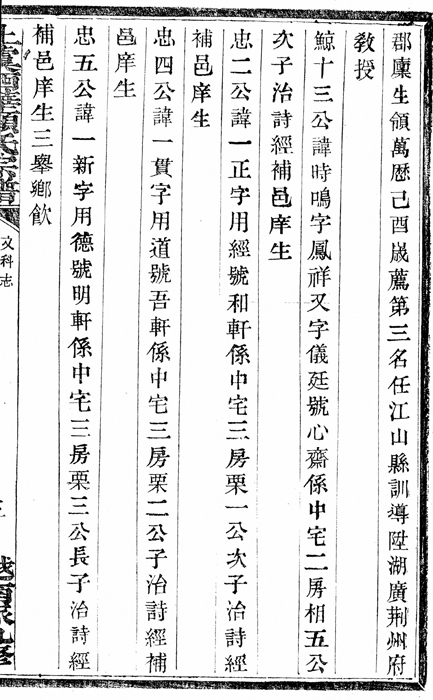 郡廩生領萬歷己酉歲薦第三名任江山縣訓導陞湖廣荆州府
教授
鯨十三公諱時鳴字鳳祥又字儀廷號心齋係中宅二房相五公
次子治詩經補邑庠生
忠二公諱一正字用經號和軒係中宅三房栗一公次子治詩經
補邑庠生
忠四公諱一貫字用道號吾軒係中宅三房栗二公子治詩經補
邑庠生
忠五公諱一新字用德號明軒係中宅三房栗三公長子治詩經
補邑庠生三舉鄉飲
文科志